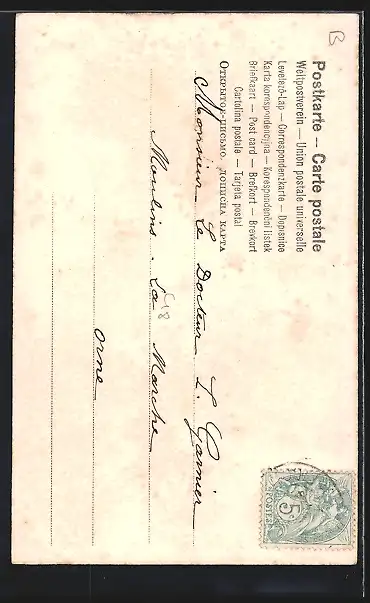 Postkarte — Carte postale
Weltpostverein — Union postale universelle
Levelező-Lap — Correspondenzkarte — Dopisnice
Karta korespondencyjna — Korespondenční lístek
Briefkaart — Post card — Brefkort — Brevkort
Cartolina postale — Tarjeta postal
Открытое письмо. Дописна карта
Monsieur Le Docteur L. Garnier
Moulins. La Marche
Orne
B
5
POSTES